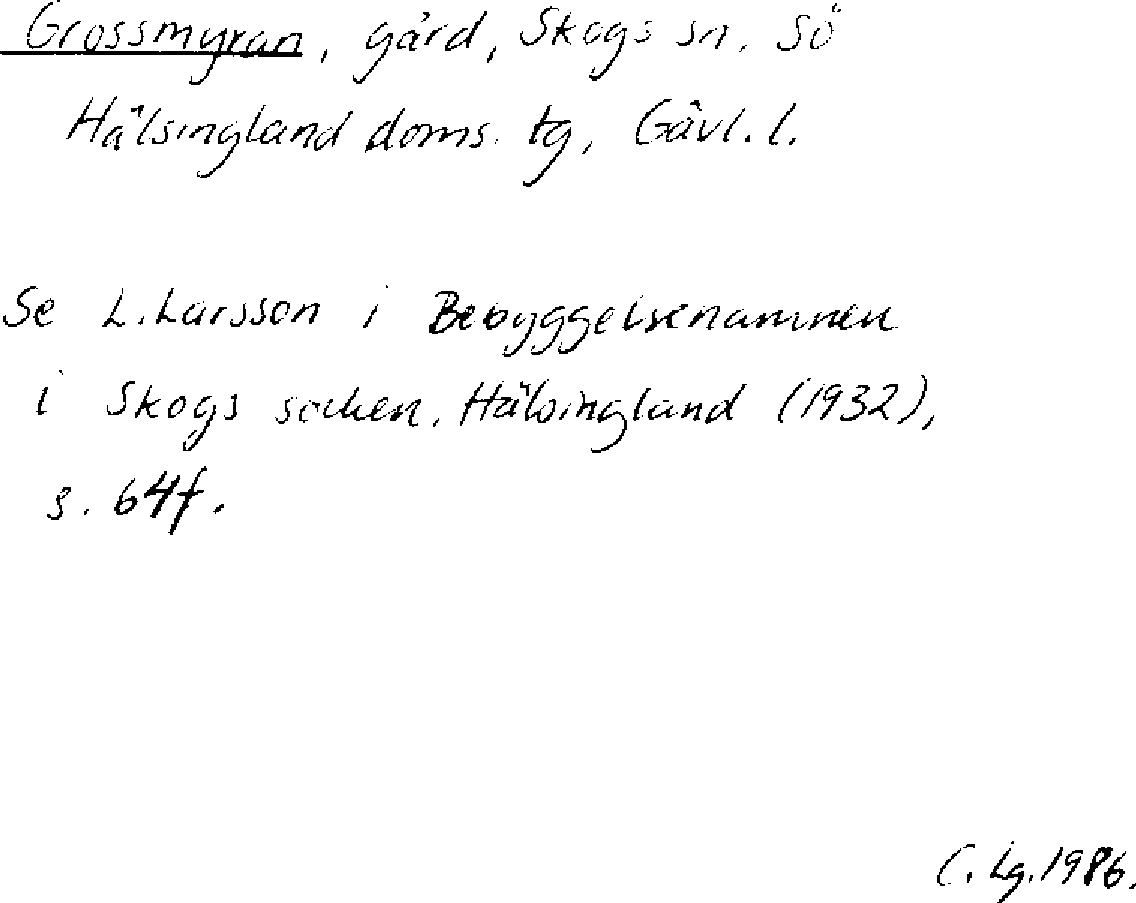 Grossmyran, gård, Skogs sn. Sö
Hälsingland doms. tg, Gävl. l.
Se L. Larsson i Bebyggelsenamnen
i Skogs socken, Hälsingland (1932),
s. 64f.
C. Lg. 1986.